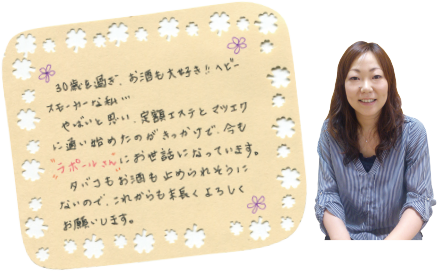 30歳を過ぎ、お酒も大好き!!ヘビー
スモーカーな私…
やばいと思い、定額エステとマツエク
に通い始めたのがきっかけで、今も
"ラポールさん"にお世話になっています。
タバコもお酒も止められそうに
ないので、これからも末長くよろしく
お願いします。